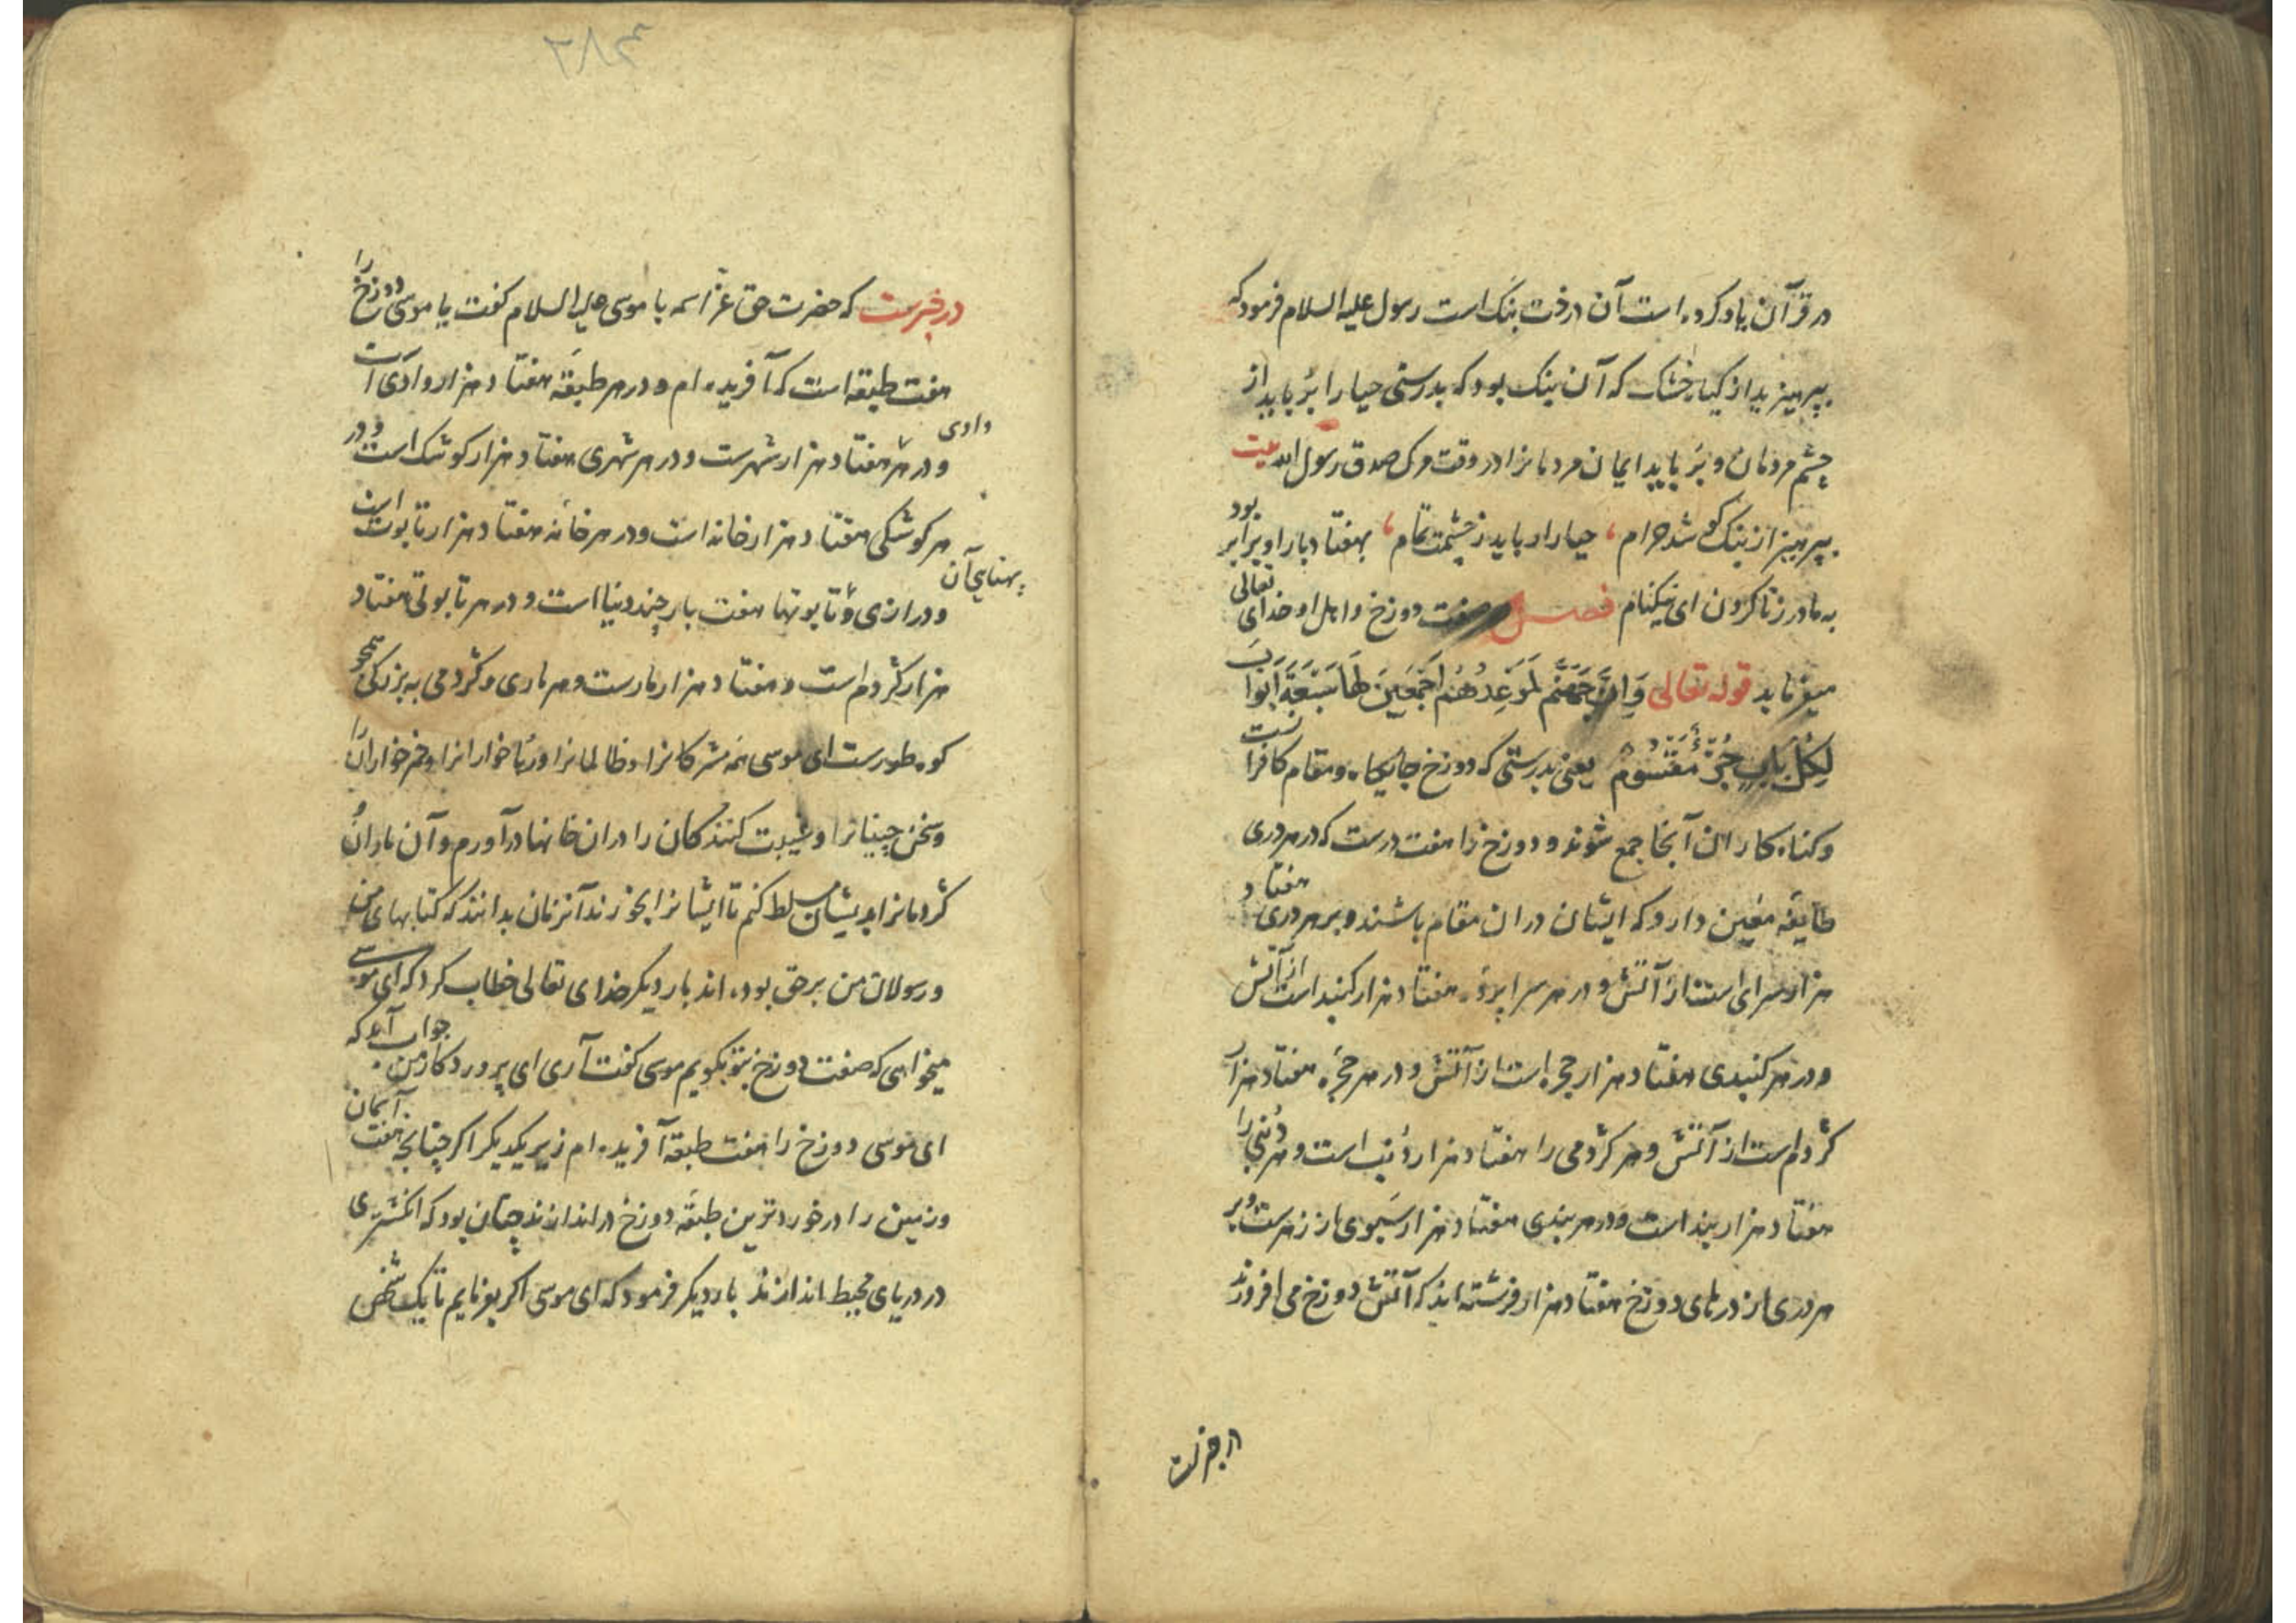 در قرآن یاد کرده است آن درخت بنک است رسول علیه السلام فرمود که
بپرهیزید از کیاه خشک که آن بنک بود که بدرستی حیا را برباید از
چشم مردمان و برباید ایمان مردمانرا در وقت مرک صدق رسول الله بیت
بپرهیز از بنک کو شد حرام ، حیا را رباید ز چشمت تمام ، بهفتاد بار او برابر بود
به مادر زنا کردن ای نیکنام فصل صفت دوزخ و اهل او خدای تعالی
میفرماید قوله تعالی وَاِنَّ جَهَنَّمَ لَمَوْعِدُهُمْ اَجْمَعِینَ لَهَا سَبْعَةُ اَبْوَابٍ
لِکُلِّ بَابٍ جُزْءٌ مَقْسُومٌ یعنی بدرستی که دوزخ جایکاه و مقام کافرانست
و کناه کاران آنجا جمع شوند و دوزخ را هفت درست که در هر دری
طایفه معین دارد که ایشان دران مقام باشند و بر هر دری هفتاد
هزار سرای است از آتش و در هر سرا پرده هفتاد هزار کنبد است از آتش
و در هر کنبدی هفتاد هزار حجره است از آتش و در هر حجره هفتاد هزار
کژدم است از آتش و هر کژدمی را هفتاد هزار دُنب است و هر دُنبی را
هفتاد هزار بند است و در هر بندی هفتاد هزار سَبوی از زهرست و بر
هر دری از درهای دوزخ هفتاد هزار فرشته اند که آتش دوزخ می افروزند
در خبرست
٣٨٢
در خبرست که حضرت حق عز اسمه با موسی علیه السلام کفت یا موسی دوزخ را
هفت طبقه است که آفریده ام و در هر طبقه هفتاد هزار وادی است
و در هر وادی هفتاد هزار شهرست و در هر شهری هفتاد هزار کوشک است و در
هر کوشکی هفتاد هزار خانه است و در هر خانه هفتاد هزار تابوت است
و درازی و پهنای آن تابوتها هفت بار چند دنیا است و در هر تابوتی هفتاد
هزار کژدم است و هفتاد هزار مارست و هر ماری و کژدمی به بزرکی همچو
کوه طورست ای موسی همه مشرکانرا و ظالمانرا و ربا خوارانرا و خمر خوارانرا
و سخن چینانرا و غیبت کنندکان را دران خانها درآورم و آن ماران و
کژدمانرا بدیشان مسلط کنم تا ایشانرا بخورند آنزمان بدانند که کتابهای من
و رسولان من برحق بوده اند بار دیکر خدای تعالی خطاب کرد که ای موسی
میخواهی که صفت دوزخ بتو بکویم موسی کفت آری ای پروردکار من جواب آمد که
ای موسی دوزخ را هفت طبقه آفریده ام زیر یکدیکر اکر چنانچه هفت آسمان
و زمین را در خوردترین طبقه دوزخ در اندازند چنان بود که انکشتری
در دریای محیط اندازند بار دیکر فرمود که ای موسی اکر بفرمایم تا یک شخص